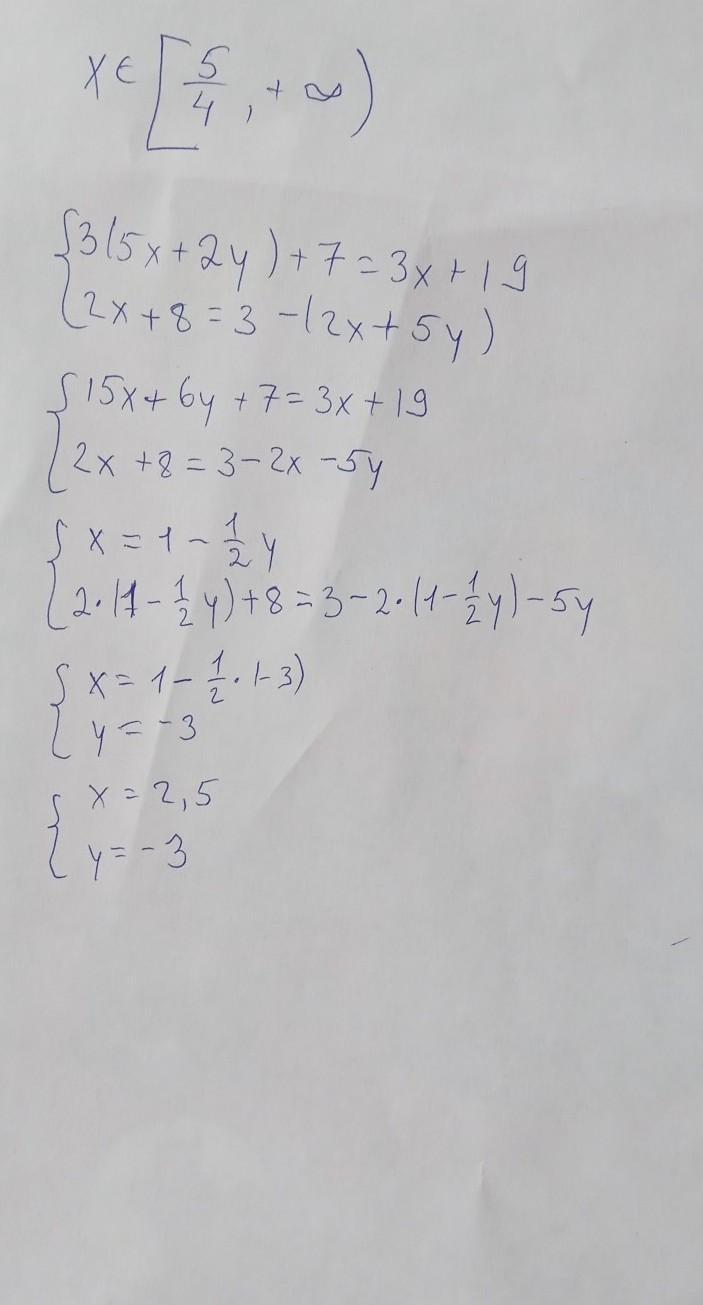 x ∈ [5/4, +∞)
{3(5x+2y)+7=3x+19
{2x+8=3-(2x+5y)
{15x+6y+7=3x+19
{2x+8=3-2x-5y
{x=1-1/2y
{2·(1-1/2y)+8=3-2·(1-1/2y)-5y
{x=1-1/2·(-3)
{y=-3
{x=2,5
{y=-3